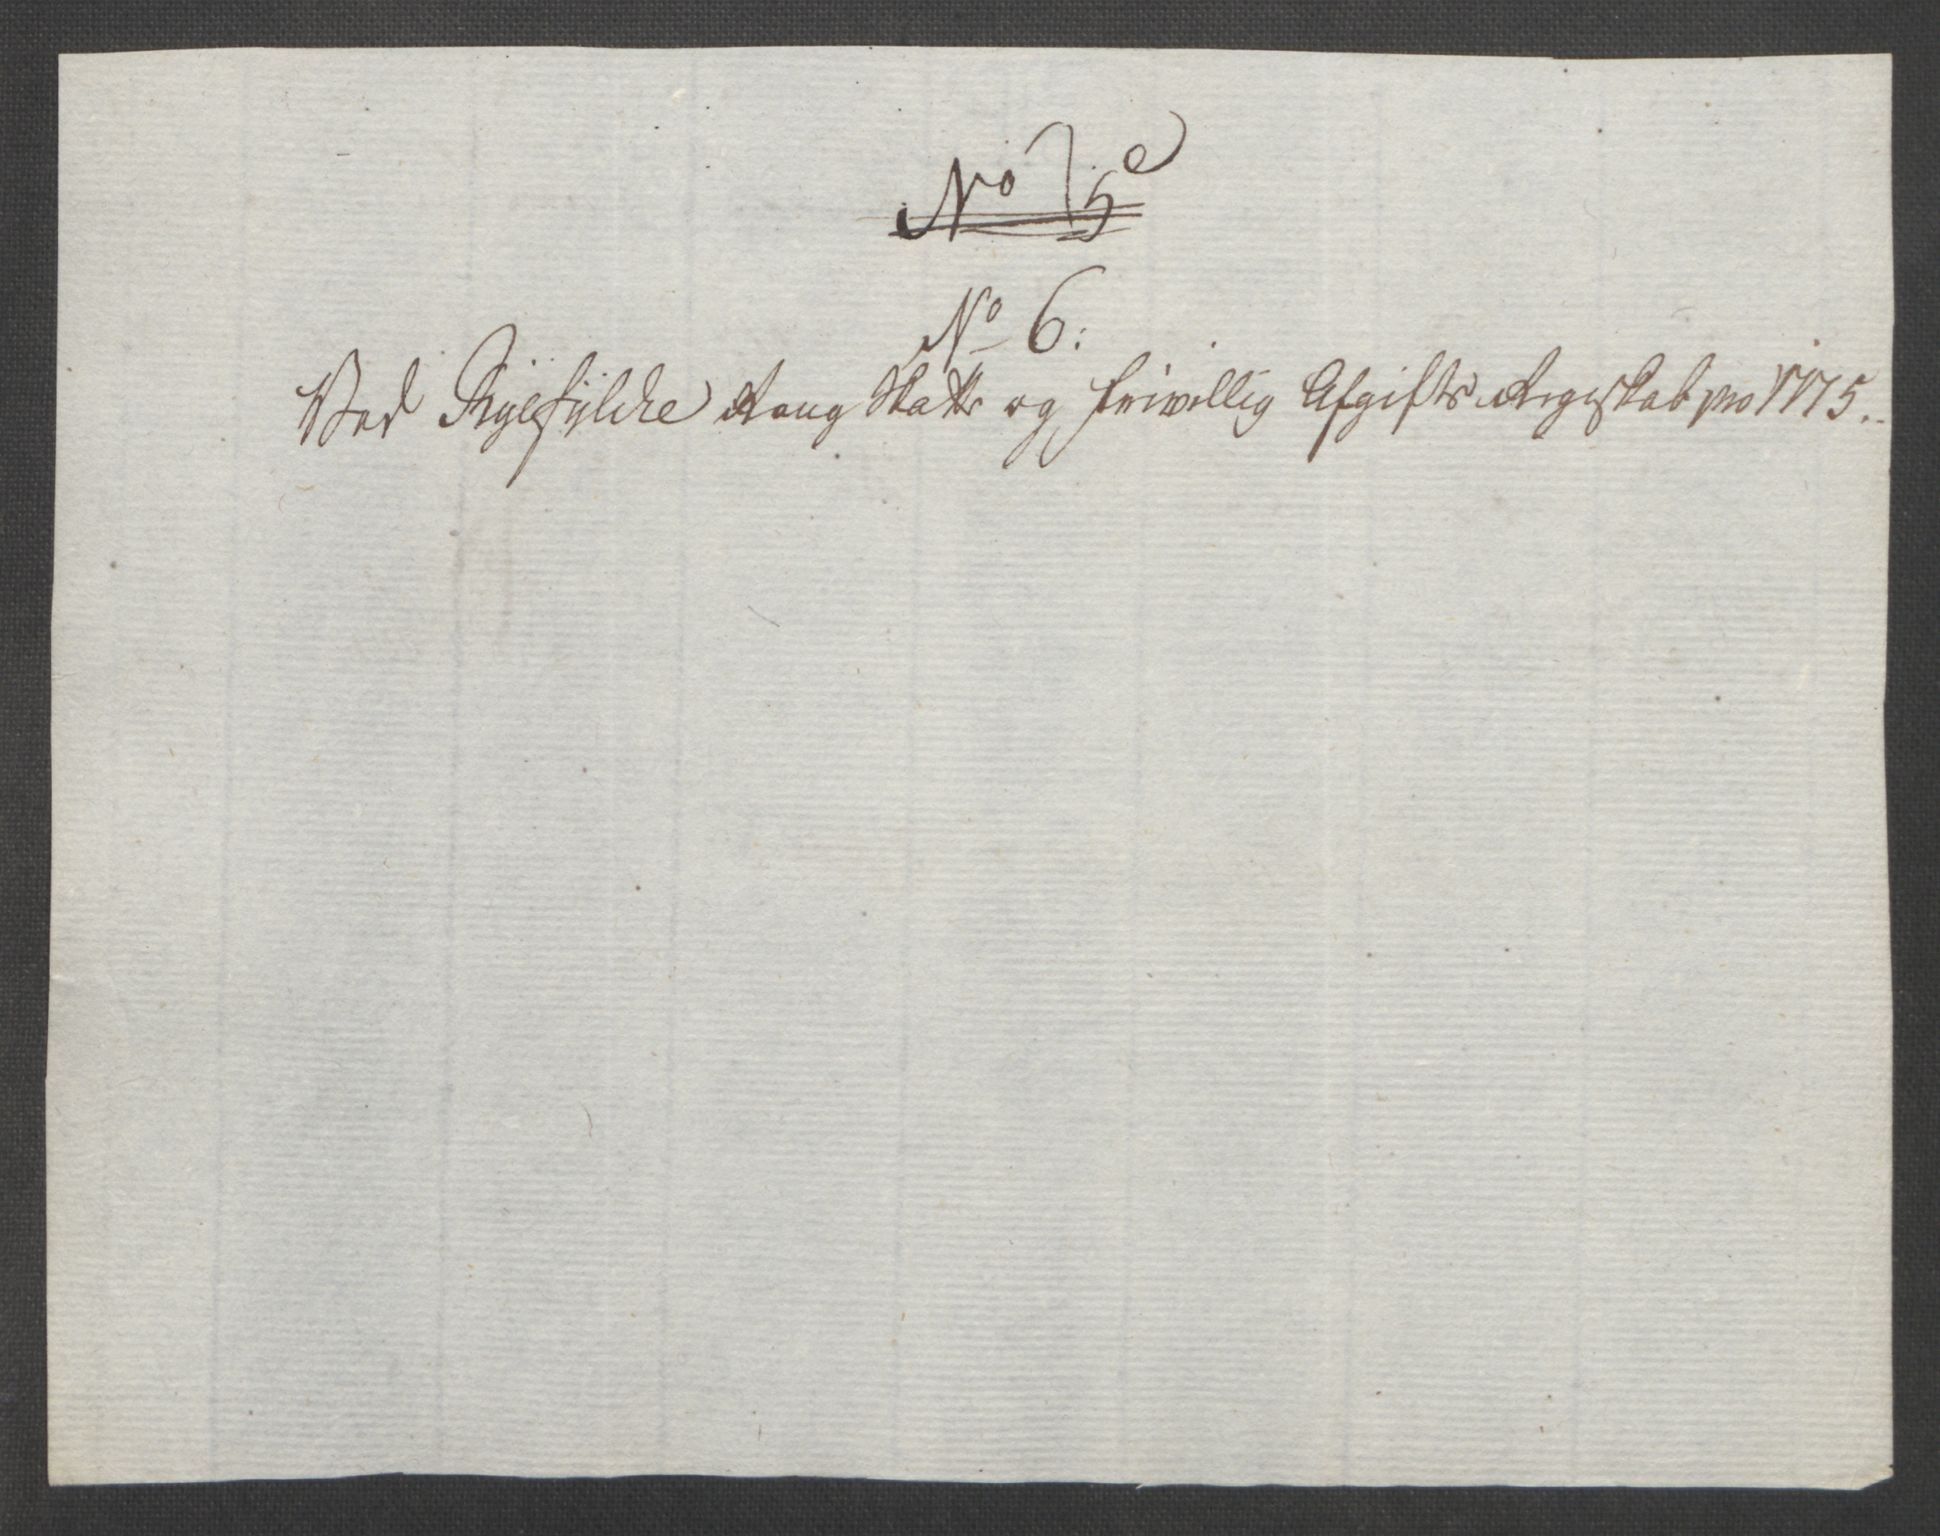 No 75 e
No 6:
Ved Ryefylche Rang Skatts og friwillig Afgifts Regnskab pro 1775.